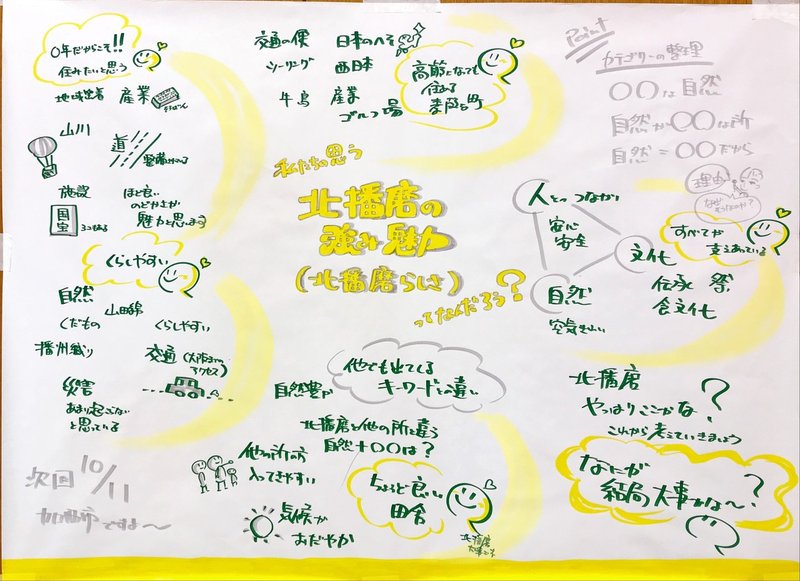 私たちの思う
北播磨の
強み魅力
(北播磨らしさ)
ってなんだろう?
住みたいと思う
地域出身 産業
山川
道
施設
国宝
ほど良い
のどかさが
魅力と思います
くらしやすい
自然
山田錦
くだもの
くらしやすい
播州織り
交通(大阪までの
アクセス)
災害
あまり起こらない
と思っている
次回 10/11
交通の便
日本のへそ
ツーリング
西日本
牛
産業
ゴルフ場
高齢となっても
Point
カテゴリーの整理
〇〇な自然
自然が〇〇な所
自然=〇〇だから
理由!
人とのつながり
安心
安全
すべてが
支えあっている
文化
伝承 祭
食文化
自然
空気きれい
他でも出てくる
キーワードとの違い
自然豊か
北播磨と他の所と違う
自然+〇〇は?
他の所の方
入ってきやすい
気候が
おだやか
ちょうど良い
田舎
北播磨
北播磨
やっぱりここかな、?
これから考えていきましょう
なにが
結局大事かな〜?